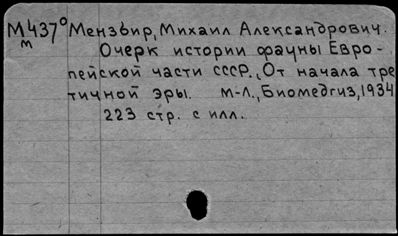 М437° Мензбир, Михаил Александрович.
м Очерк истории фауны Евро-
пейской части СССР. (От начала тре
тичной эры. М-Л., Биомедгиз, 1934
223 стр. с илл.